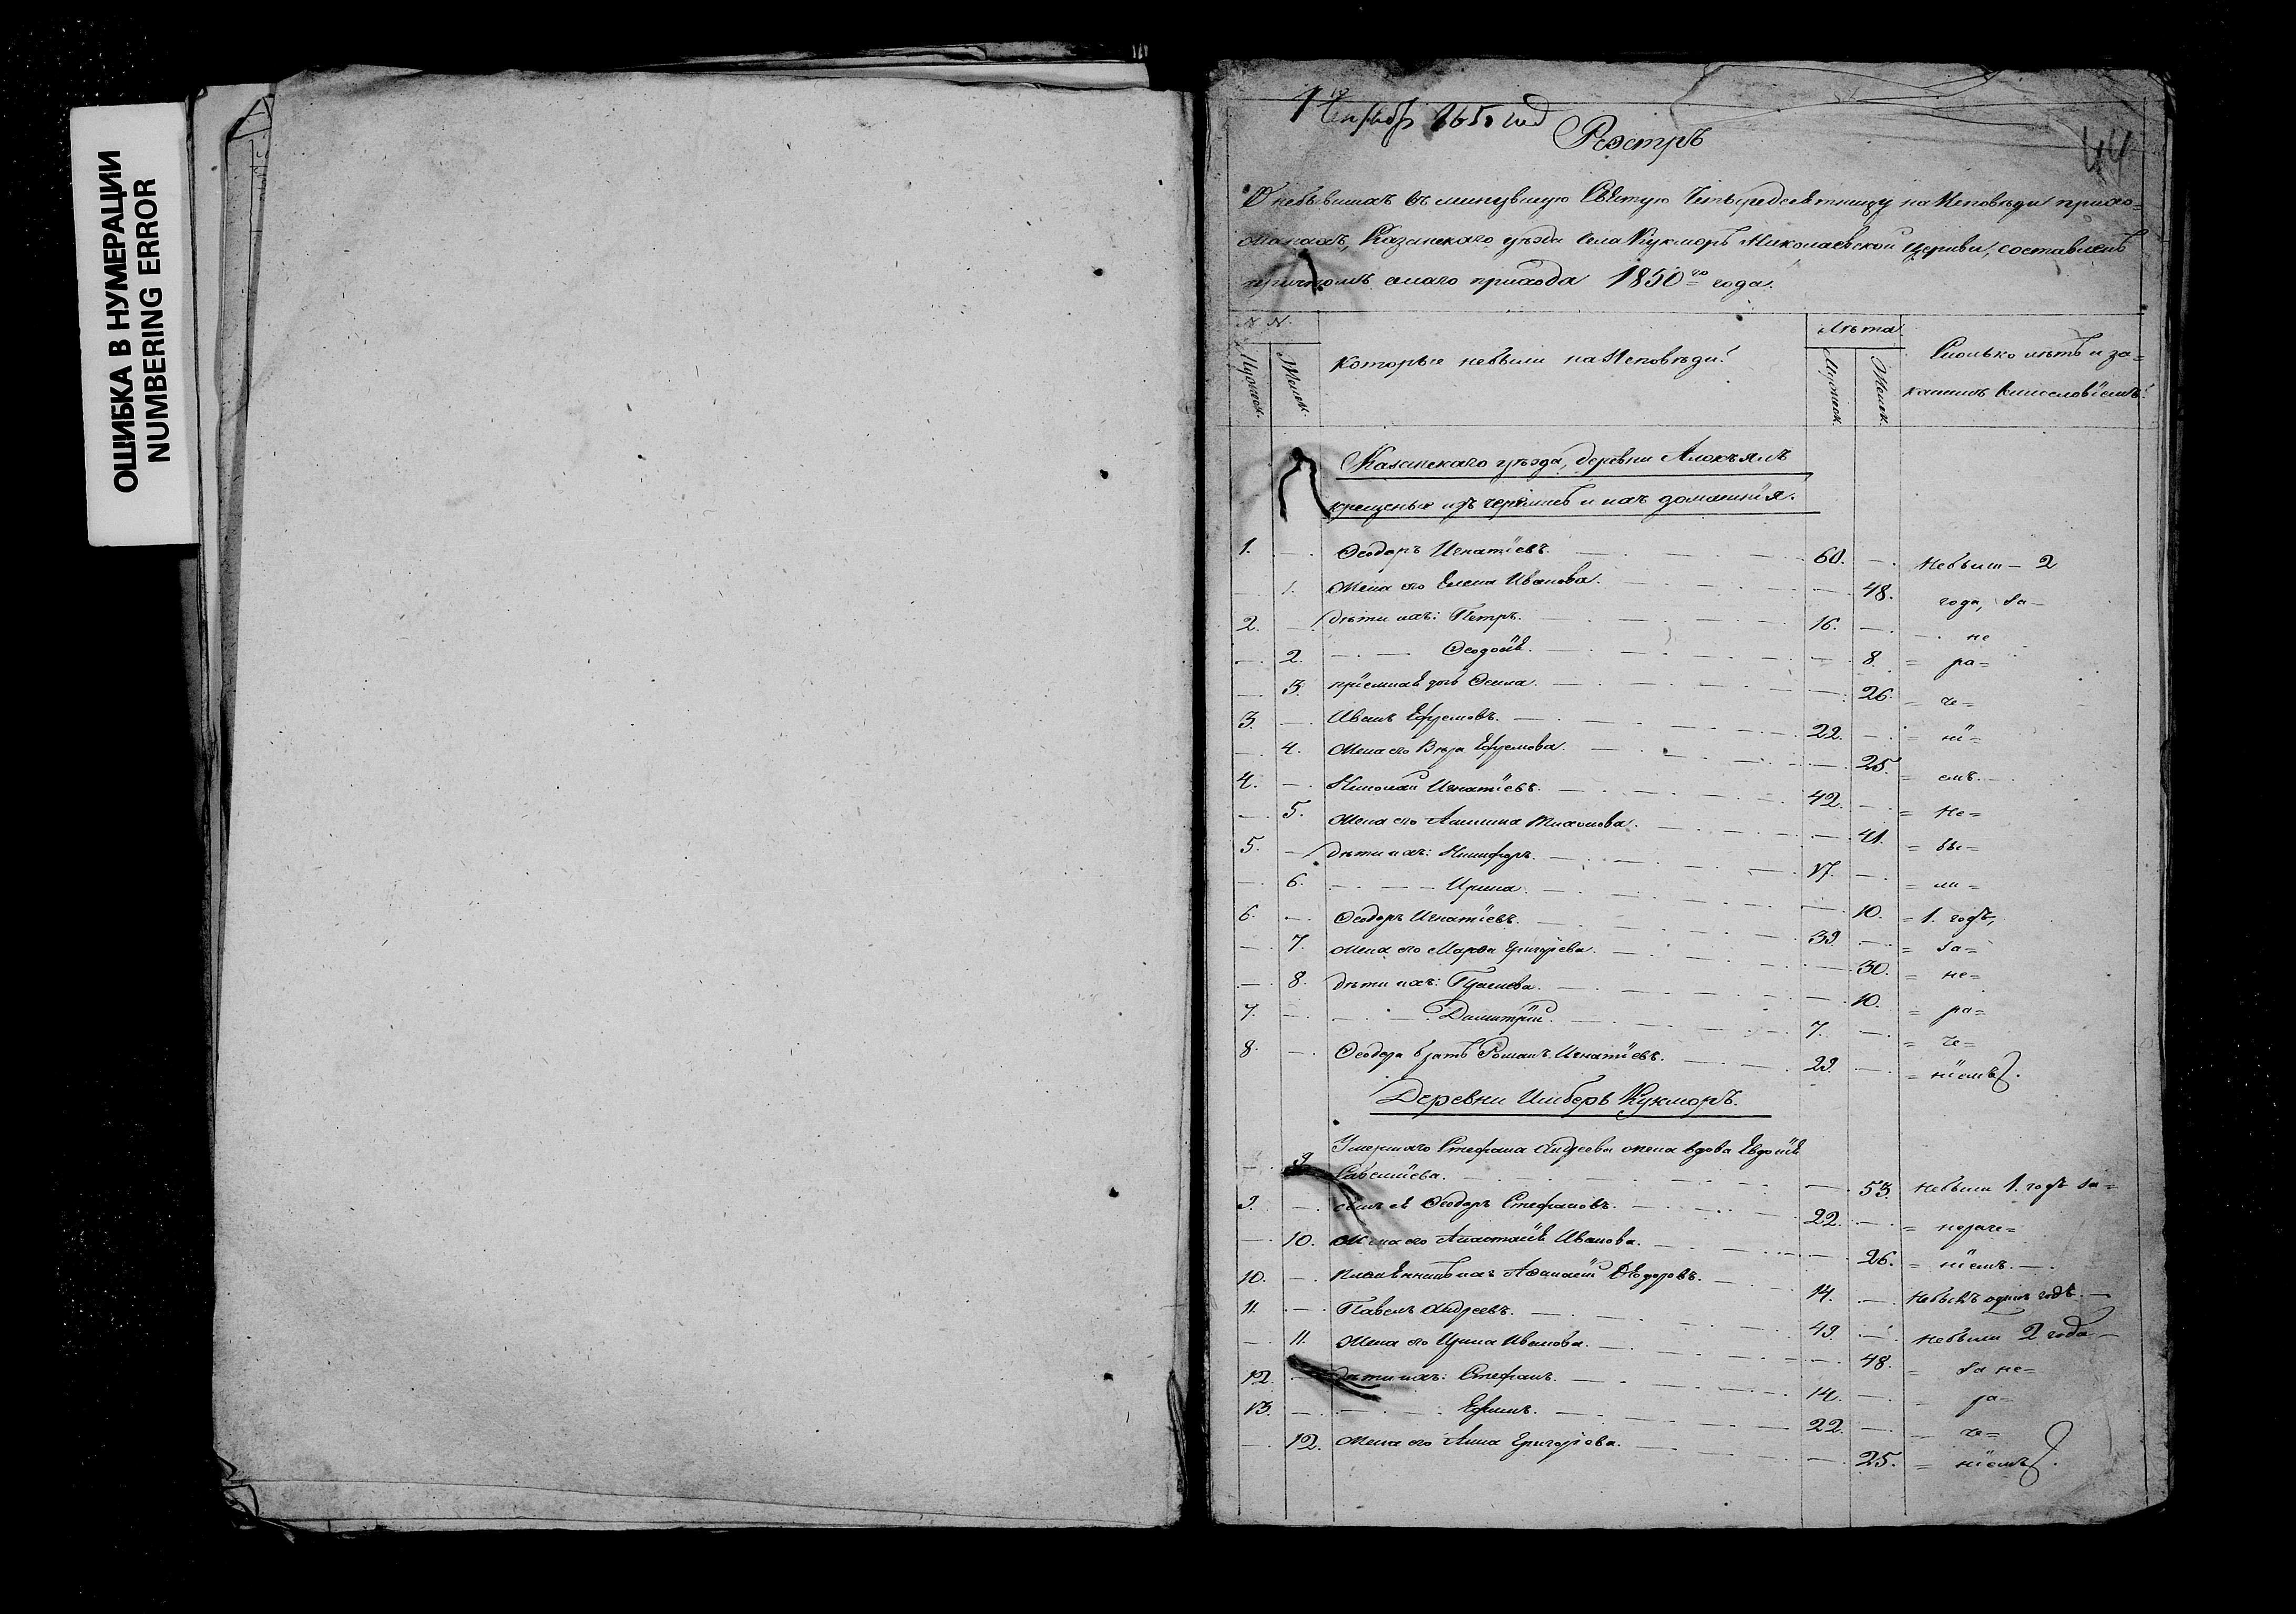 ОШИБКА В НУМЕРАЦИИ
NUMBERING ERROR
44
Реэстръ
О небывшихъ въ минувшую Святую Четыредесятницу на Исповѣди прихо=
жанахъ, Казанскаго уѣзда села Кукморъ Николаевской церкви, составленъ
причтомъ онаго прихода 1850го года.
N N. Которые небыли на Исповѣди? Лѣта Сколько лѣтъ и за=
Мужеск. Женск. Мужеск. Женск. какимъ
Казанскаго уѣзда, деревни
крещеные изъ черемисъ и ихъ домашнія.
1. — Ѳеодоръ Игнатіевъ. 60. — Небыли — 2
— 1. Жена его Елена Иванова. — 48. года, за—
2. — Дѣти ихъ: Петръ. 16. — не
— 2. — 8. = ра=
— 3. пріемная дочь — 26. = че=
3. — Иванъ Ефремовъ. 22. — = ні=
— 4. Жена его Вѣра Ефремова. — 25. = емъ.
4. — Николай Игнатіевъ. 42. — = Не=
— 5. Жена его — 41. = бы=
5. — Дѣти ихъ: Никифоръ. 17. — = ли=
— 6. Ирина. — 10. = 1. годъ,
6. — Ѳеодоръ Игнатіевъ. 39. — = за=
— 7. Жена его Марѳа Григорьева. — 30. = не=
— 8. дѣти ихъ: — 10. = ра=
7. — Димитрій. 7. — = че=
8. — Ѳеодора братъ Романъ Игнатіевъ. 29. — = ніемъ.
Деревни Кукморъ.
— 9 Умершаго Стефана Андреева жена вдова Евдокія
Савельіева. — 53. Небыли 1. годъ за=
9. — сынъ ея Ѳеодоръ Стефановъ. 22. — = нераче=
— 10. Жена его Анастасія Иванова. — 26. = ніемъ.
10. — Племянникъ ихъ Аѳанасій Ѳеодоровъ. 14. — Небылъ одинъ годъ.
11. — Павелъ Андреевъ. 49. — Небыли 2 года
— 11. Жена его Ирина Иванова. — 48. = за не=
12. — Дѣти ихъ: Стефанъ. 14. — = ра=
13. — Ефимъ. 22. — = че=
— 12. Жена его Анна Григорьева. — 25. = ніемъ.